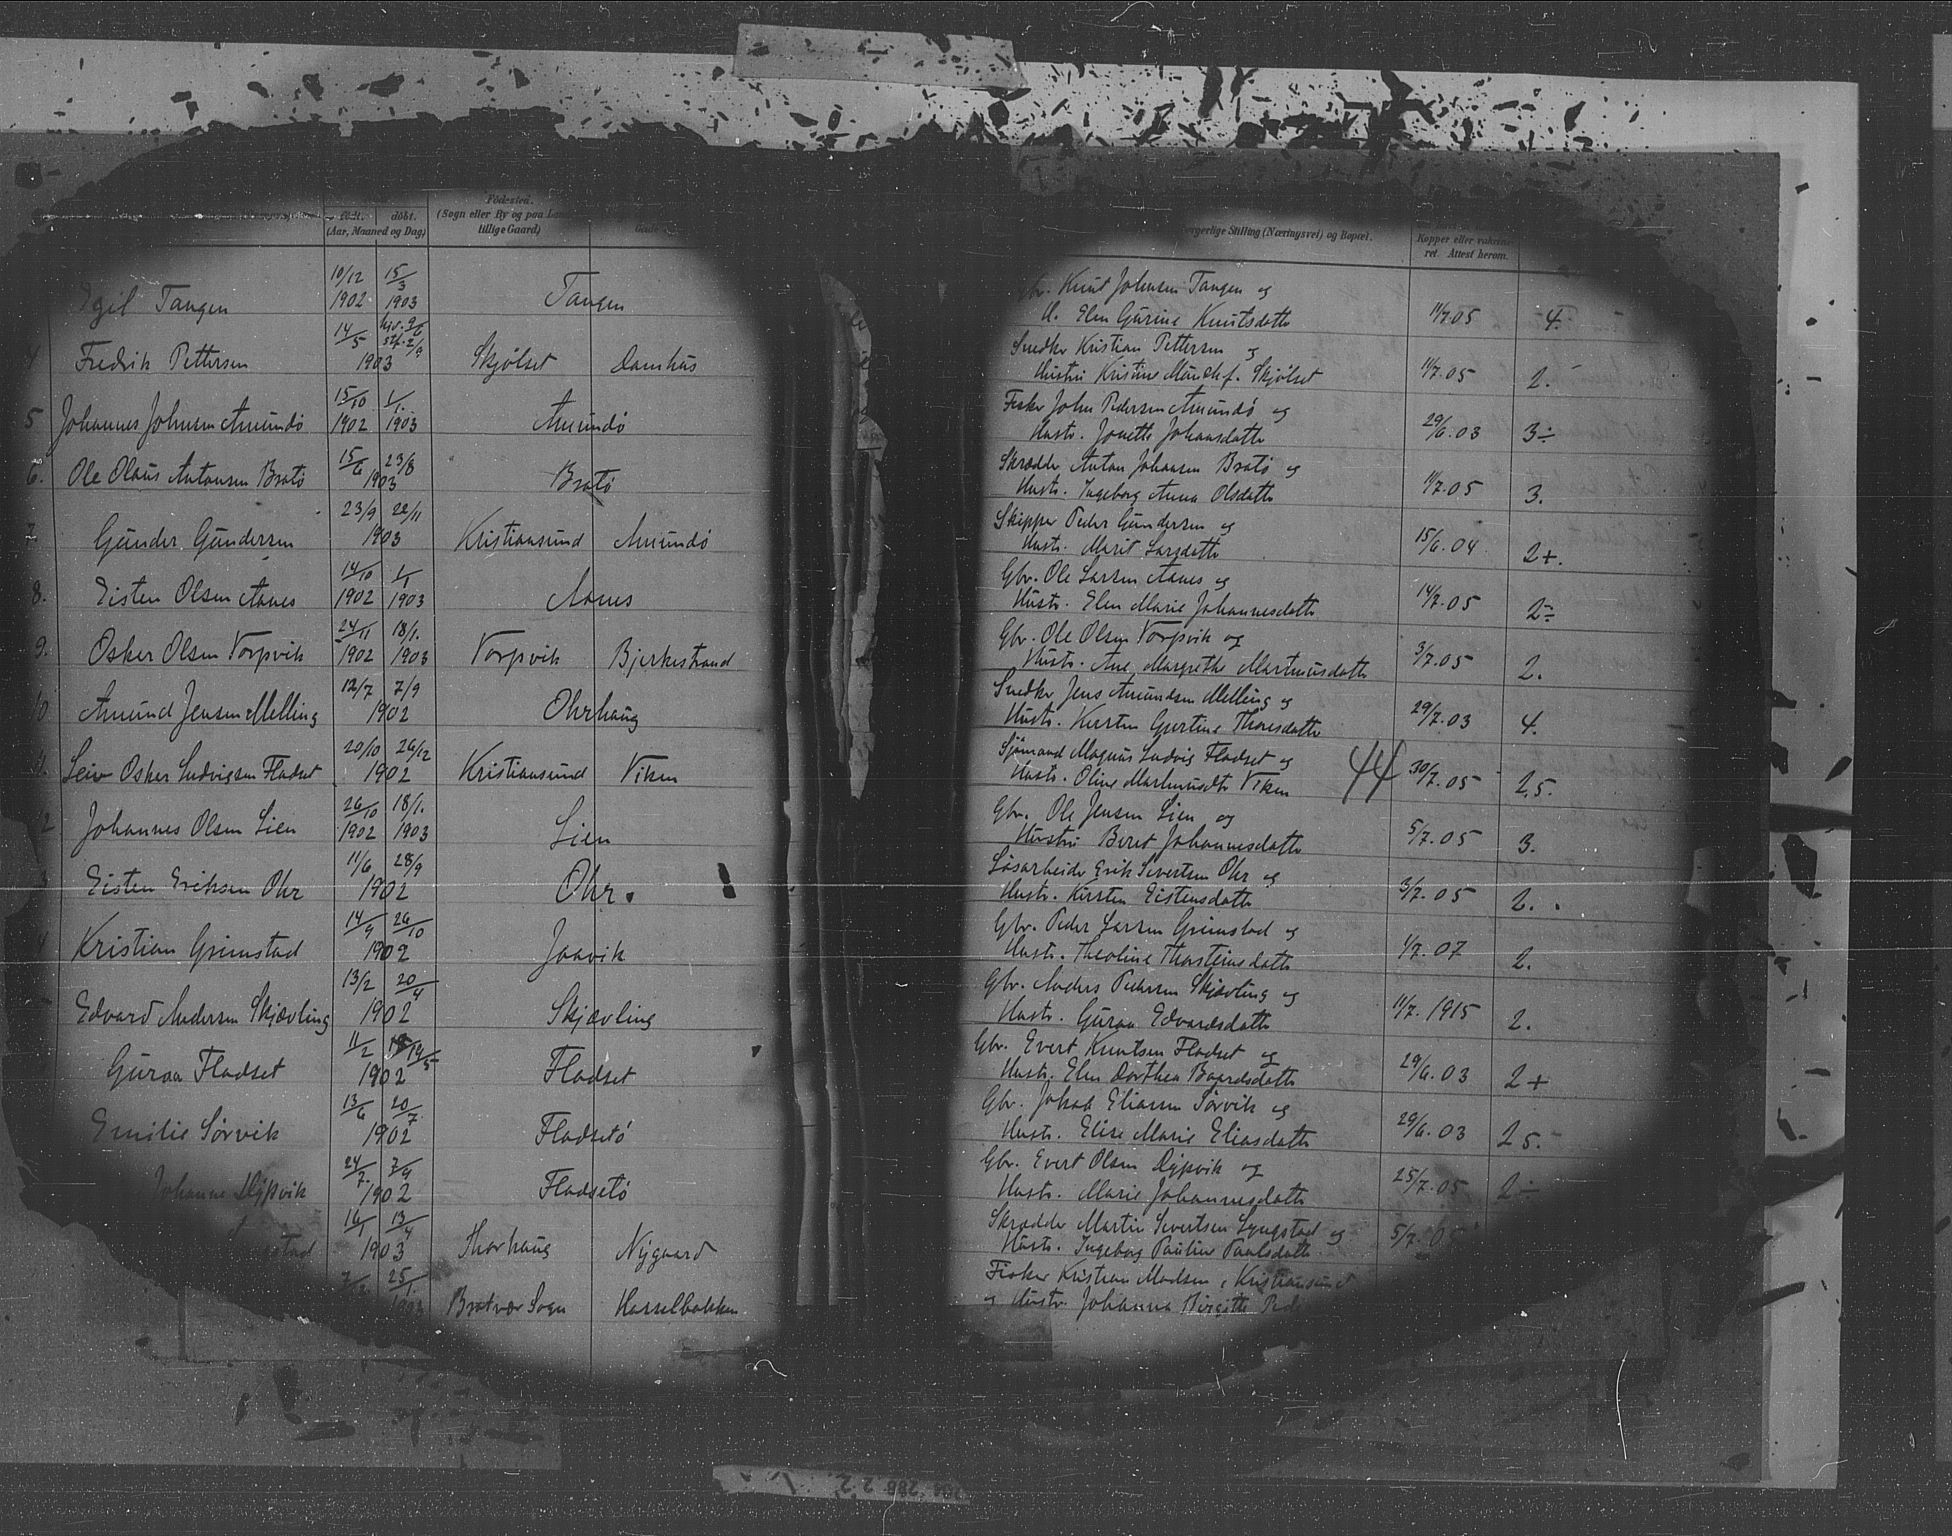 Födested.
födt. döbt. (Sogn eller By og paa
(Aar, Maaned og Dag) tillige Gaard)
Egil Tangen 10/12 1902 15/3 1903 Tangen
4 Fredrik Pettersen 14/5 hjd. 9/6 1903 Skjølset Damhus
5 Johannes Johnsen Amundö 15/10 1902 1/1. 1903 Amundö
6. Ole Olaus Antonsen Bratö 15/6 23/8 1903 Bratö
7. Gunder Gundersen 23/9 22/11 1903 Kristiansund Amundö
8. Eisten Olsen Aanes 14/10 1902 1/1 1903 Aanes
9. Osker Olsen Vorpvik 24/11 1902 18/1. 1903 Vorpvik Bjerkestrand
10 Amund Jensen Melling 12/7 7/9 1902 Ohrhaug
11. Leiv Osker Ludvigsen Fladset 20/10 26/12 1902 Kristiansund Viken
12 Johannes Olsen Lien 26/10 1902 18/1. 1903 Lien
3 Eisten Eriksen Ohr 11/6 28/9 1902 Ohr.
4 Kristian Grimstad 14/9 26/10 1902 Jaavik
Edvard Andersen Skjævling 13/2 20/4 1902 Skjævling
Guraa Fladset 11/2 19/5 1902 Fladset
Emilie Sörvik 13/6 20/7 1902 Fladsetö
Johanne Dypvik 24/7. 7/9 1902 Fladsetö
16/1 13/4 1903 Thorhaug Nygaard
25/1 1903 Bratvær Sogn Hasselbakken
borgerlige Stilling (Næringsvei) og Bopæl.
Kopper eller vakcine-
ret. Attest herom.
Gbr. Knut Johnsen Tangen og
H. Elen Gurine Knutsdatte 11/7.05 4.
Snedker Kristian Pettersen og
Hustru Kristine Munch f. Skjølset 11/7.05 2.
Fisker John Pedersen Amundö og
Hustr. Jonette Johansdatte 29/6.03 3÷
Skrædder Anton Johansen Bratö og
Hustr. Ingeborg Anna Olsdatte 11/7.05 3.
Skipper Peder Gundersen og
Hustr. Marit Larsdatte 15/6.04 2+.
Gbr. Ole Larsen Aanes og
Hustr. Elen Marie Johannesdatte 14/7.05 2÷
Gbr. Ole Olsen Vorpvik og
Hustr. Ane Margrethe Martinusdatte 3/7.05 2.
Snedker Jens Amundsen Melling og
Hustr. Kirsten Gjertine Thoresdatte 29/7.03 4.
Sjömand Magnus Ludvig Fladset og
Hustr. Oline Martinusdtr Viken 44 30/7.05 2,5.
Gbr. Ole Jensen Lien og
Hustru Beret Johannesdatte 5/7.05 3.
Løsarbeider Erik Sivertsen Ohr og
Hustr. Kirsten Eistensdatte 3/7.05 2.
Gbr. Peder Larsen Grimstad og
Hustr. Theoline Thorsteinsdatte 1/7.07 2.
Gbr. Anders Pedersen Skjævling og
Hustr. Guraa Edvardsdatte 11/7.1915 2.
Gbr. Evert Knutsen Fladset og
Hustr. Elen Dorthea Baardsdatte 29/6.03 2+
Gbr. Jakob Eliassen Sörvik og
Hustr. Elise Marie Eliasdatte 29/6.03 25.
Gbr. Evert Olsen Dypvik og
Hustr. Marie Johannesdatte 25/7.05 2÷
Skrædder Martin Sivertsen Lyngstad og
Hustr. Ingeborg Pauline Paulsdatte 5/7.05
Fisker Kristian Madsen, Kristiansund
og Hustr. Johanna Birgitte